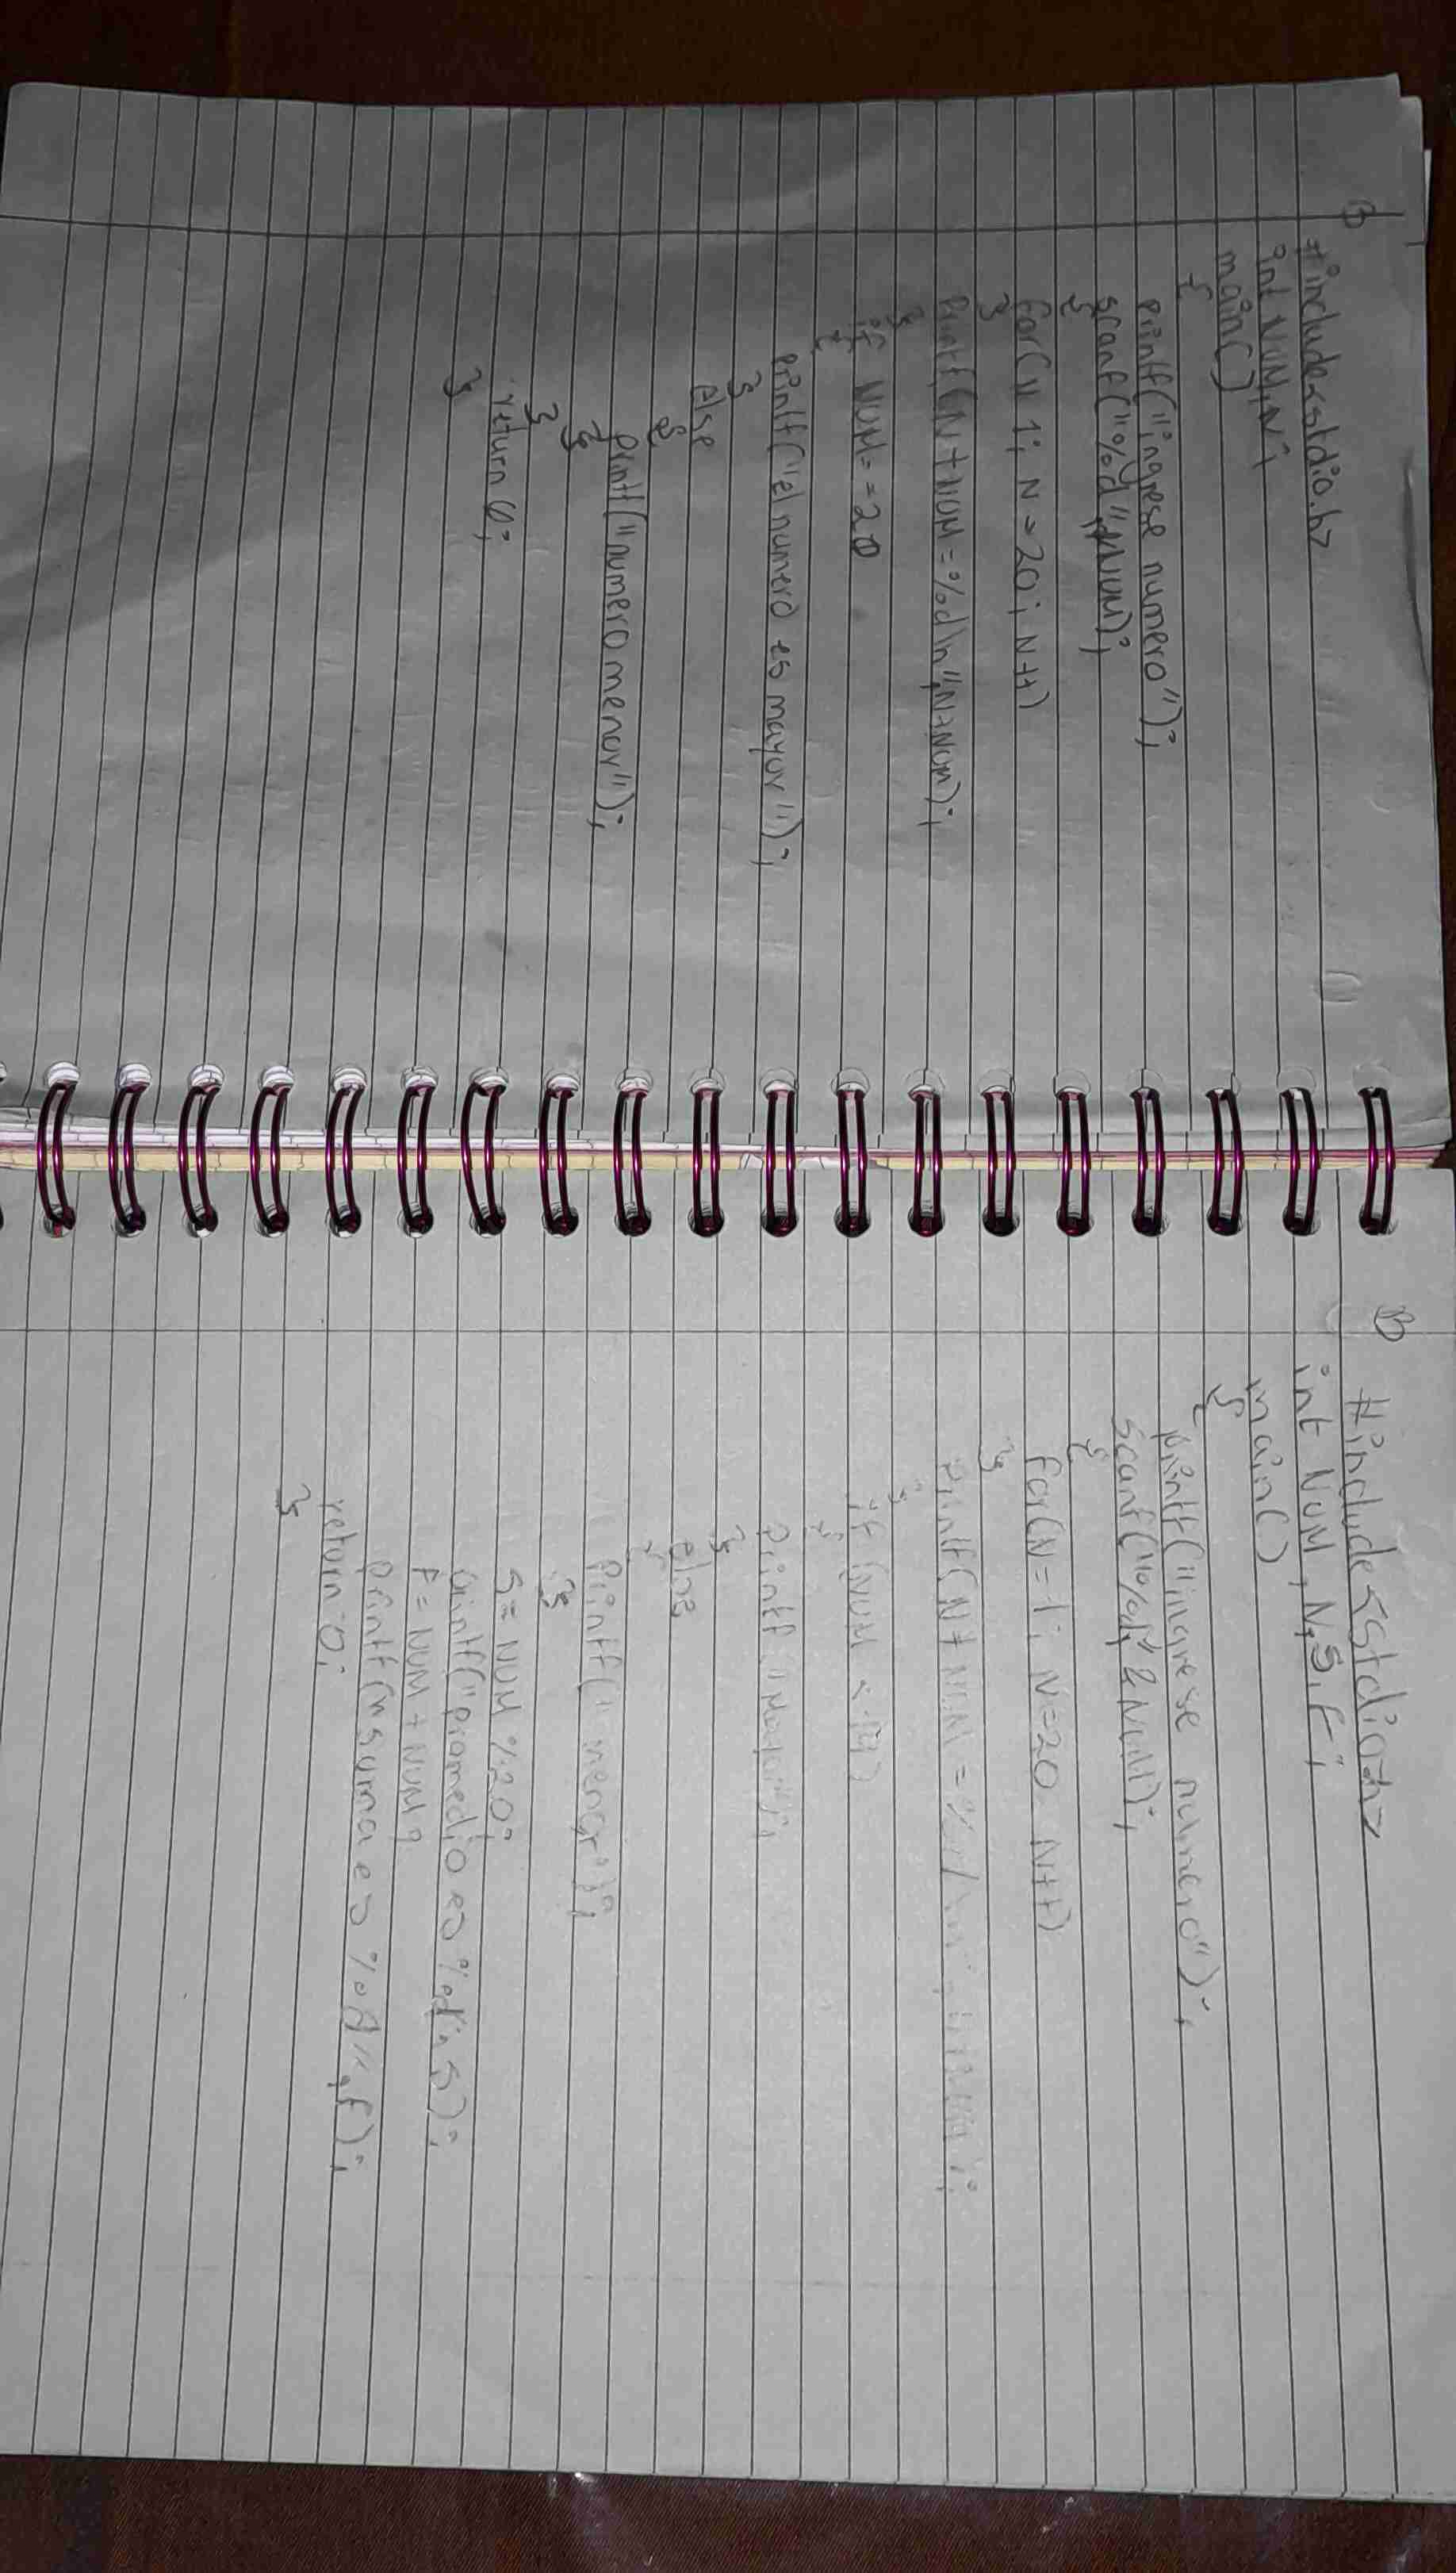 #include<stdio.h>
int NUM,N;
main()
{
printf("ingrese numero");
scanf("%d",&NUM);
{
for(N 1; N > 20; N++)
}
printf(N+NUM=%d\n",N+NUM);
}
if NUM==20
{
printf("el numero es mayor");
}
else
{
printf("numero menor");
}
}
return 0;
}
#include<stdio.h>
int NUM, N, S, F;
main()
{
printf("ingrese numero");
scanf("%d,"&NUM);
{
for(N=1; N=20 N++)
}
printf(N+NUM =
}
if (NUM
{
printf
}
else
{
printf("menor");
}
S= NUM %20;
printf("promedio es %d",S);
F= NUM + NUM
printf("suma es %d",F);
return 0;
}